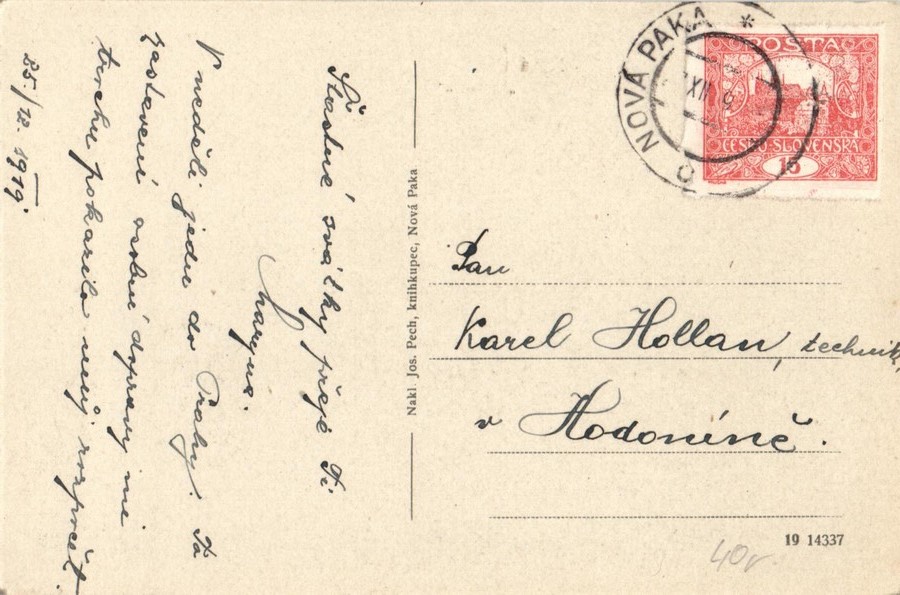 Šťastné svátky přeje Ti
V neděli jedu do Prahy. Ta
zastavení osobní dopravy mi
trochu pokazilo můj rozpočet.
25./12. 1919.
Nakl. Jos. Pech, knihkupec, Nová Paka
NOVÁ PAKA
XII 9
POŠTA
ČESKO-SLOVENSKÁ
15
Pan
Karel Hollan, technik,
v Hodoníně.
19 14337
40,-